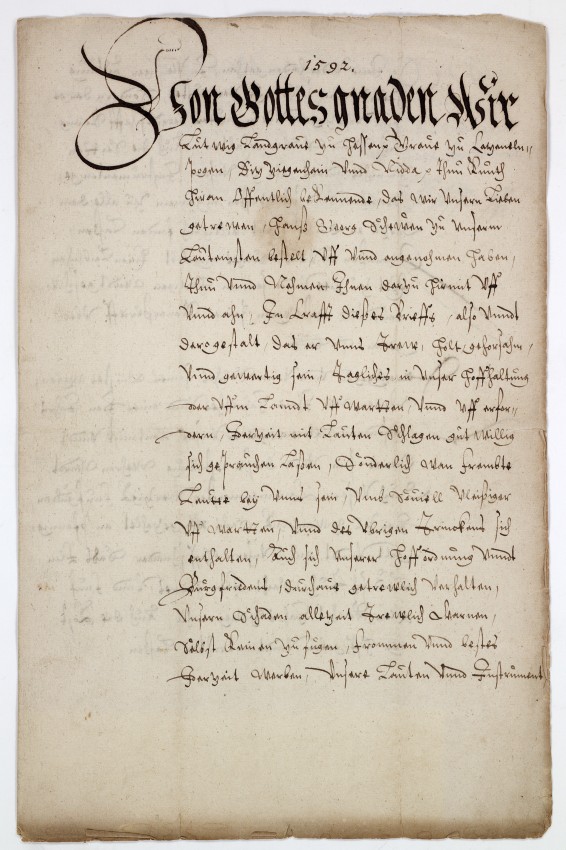 1592.
Von Gottes gnaden Wir
Ludtwig Landgraue zu Hessen, Graue zu Catzeneln-,
pogen, Ditz Ziegenhein Vnnd Nidda, Thun Kunth
hiran Offentlich bekennende, das wir Vnsern Lieben
getrewen, Hanß Georg zu Vnserm
Lautenisten bestelt, Vff Vnnd angenohmen haben,
Thun Vnnd Nehmen Ihnen darzu hiemit Vff
Vnnd ahn, In Crafft dießes Brieffs, also Vnndt
dero gestalt, das er Vnns Trew, Holt gehorsahm,
Vnnd gewertig sein, Tagliches in Vnser Hoffhaltung
oder Vffm Landt Vff wartten, Vnnd Vff erfor-,
dern, Jderzeit mit Lauten Schlagen gut willig
sich geprauchen Laßen, Sonderlich wan frembte
Leutte bey Vnns sein, Vmb Souiell Vleißiger
Vff wartten Vnnd des Vbrigen Trinckens sich
enthalten, Auch sich Vnserer Hoff ordnung Vnndt
Burgfriedens, durchaus getrewlich Verhalten,
Vnsern Schaden alletzeit Trewlich Warnen,
Selbst Keinen zu fugen, frommen Vnnd bestes
Jderzeit Werben, Vnsere Lauten Vnnd Instrument